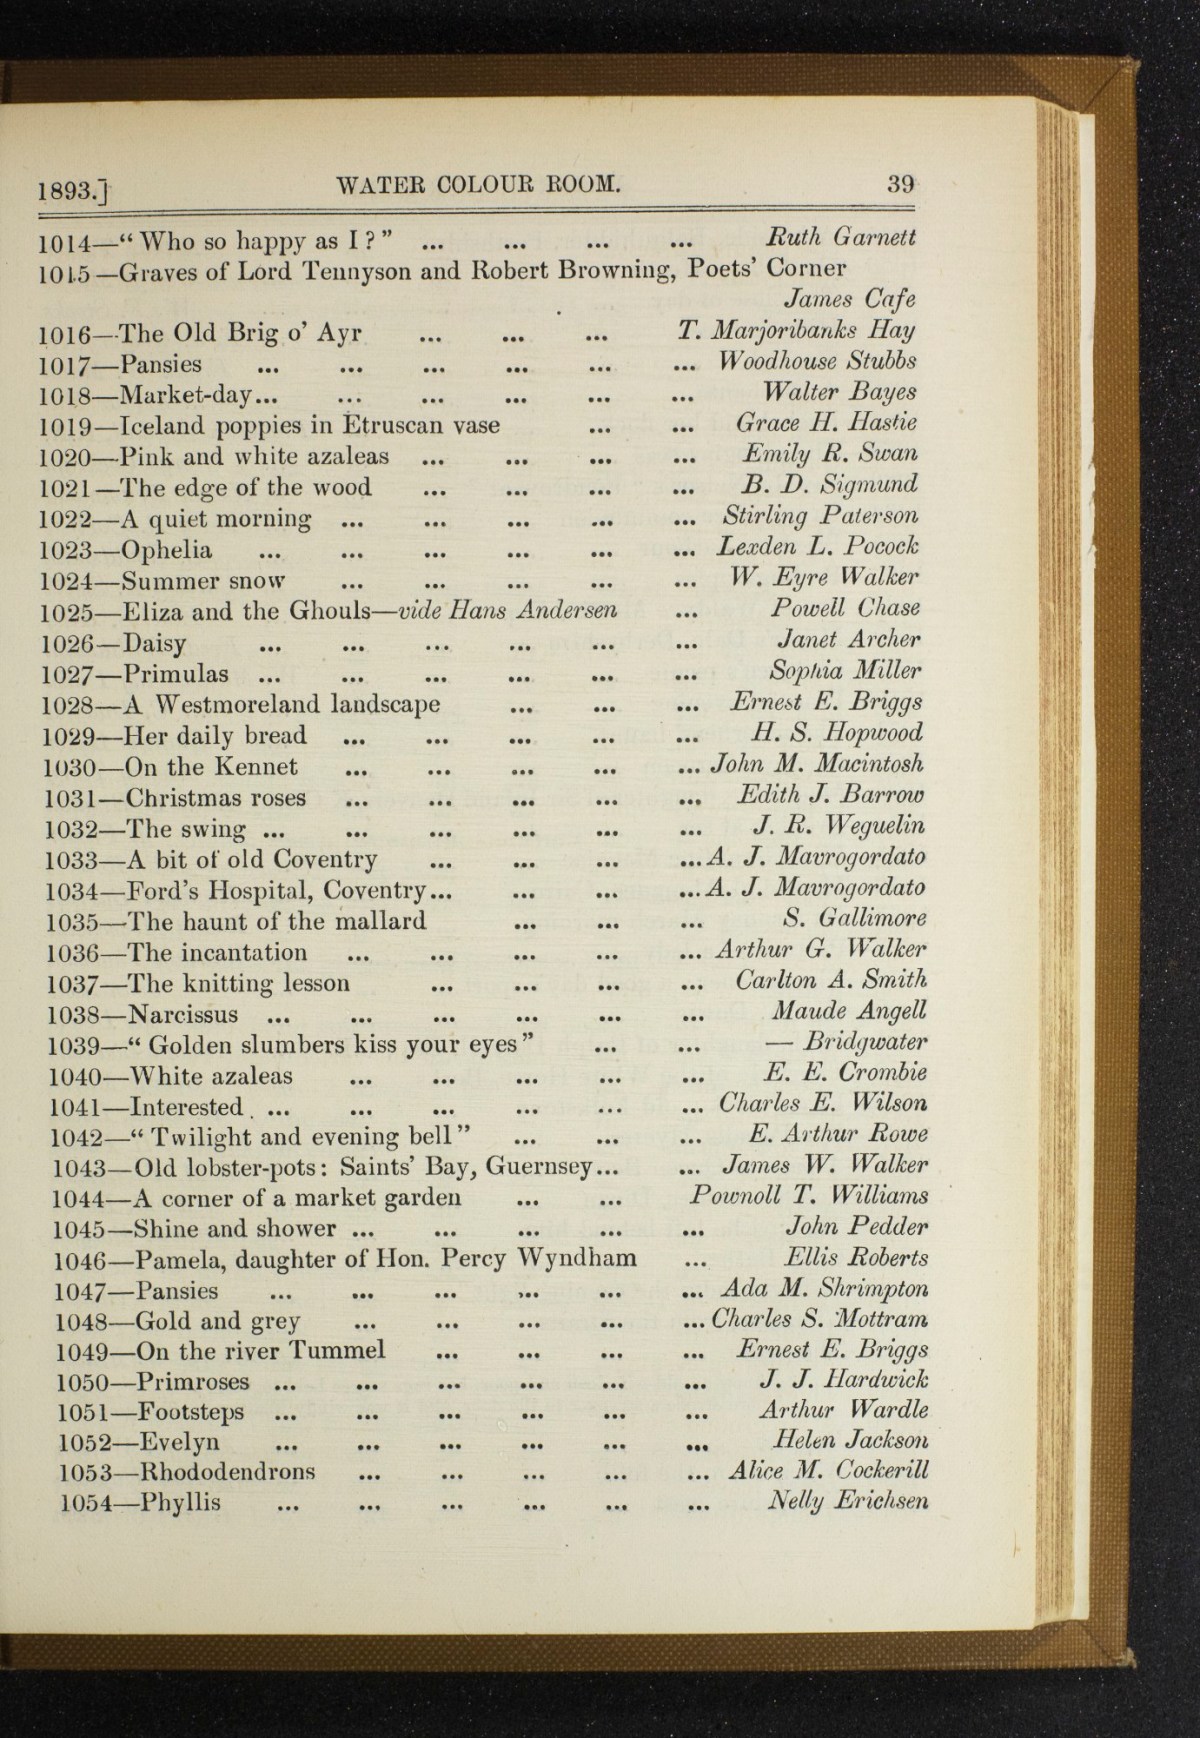 1893.] WATER COLOUR ROOM. 39
1014—“Who so happy as I?” ... ... ... ... Ruth Garnett
1015—Graves of Lord Tennyson and Robert Browning, Poets’ Corner
James Cafe
1016—The Old Brig o’ Ayr ... ... ... T. Marjoribanks Hay
1017—Pansies ... ... ... ... ... ... Woodhouse Stubbs
1018—Market-day... ... ... ... ... ... Walter Bayes
1019—Iceland poppies in Etruscan vase ... ... Grace H. Hastie
1020—Pink and white azaleas ... ... ... ... Emily R. Swan
1021—The edge of the wood ... ... ... ... B. D. Sigmund
1022—A quiet morning ... ... ... ... ... Stirling Paterson
1023—Ophelia ... ... ... ... ... ... Lexden L. Pocock
1024—Summer snow ... ... ... ... ... W. Eyre Walker
1025—Eliza and the Ghouls—vide Hans Andersen ... Powell Chase
1026—Daisy ... ... ... ... ... ... Janet Archer
1027—Primulas ... ... ... ... ... ... Sophia Miller
1028—A Westmoreland landscape ... ... ... Ernest E. Briggs
1029—Her daily bread ... ... ... ... ... H. S. Hopwood
1030—On the Kennet ... ... ... ... ... John M. Macintosh
1031—Christmas roses ... ... ... ... ... Edith J. Barrow
1032—The swing ... ... ... ... ... ... J. R. Weguelin
1033—A bit of old Coventry ... ... ... ... A. J. Mavrogordato
1034—Ford’s Hospital, Coventry... ... ... ... A. J. Mavrogordato
1035—The haunt of the mallard ... ... ... S. Gallimore
1036—The incantation ... ... ... ... ... Arthur G. Walker
1037—The knitting lesson ... ... ... ... Carlton A. Smith
1038—Narcissus ... ... ... ... ... ... Maude Angell
1039—“Golden slumbers kiss your eyes” ... ... — Bridgwater
1040—White azaleas ... ... ... ... ... E. E. Crombie
1041—Interested ... ... ... ... ... ... Charles E. Wilson
1042—“Twilight and evening bell” ... ... ... E. Arthur Rowe
1043—Old lobster-pots: Saints’ Bay, Guernsey... ... James W. Walker
1044—A corner of a market garden ... ... Pownoll T. Williams
1045—Shine and shower ... ... ... ... ... John Pedder
1046—Pamela, daughter of Hon. Percy Wyndham ... Ellis Roberts
1047—Pansies ... ... ... ... ... ... Ada M. Shrimpton
1048—Gold and grey ... ... ... ... ... Charles S. Mottram
1049—On the river Tummel ... ... ... ... Ernest E. Briggs
1050—Primroses ... ... ... ... ... ... J. J. Hardwick
1051—Footsteps ... ... ... ... ... ... Arthur Wardle
1052—Evelyn ... ... ... ... ... ... Helen Jackson
1053—Rhododendrons ... ... ... ... ... Alice M. Cockerill
1054—Phyllis ... ... ... ... ... ... Nelly Erichsen